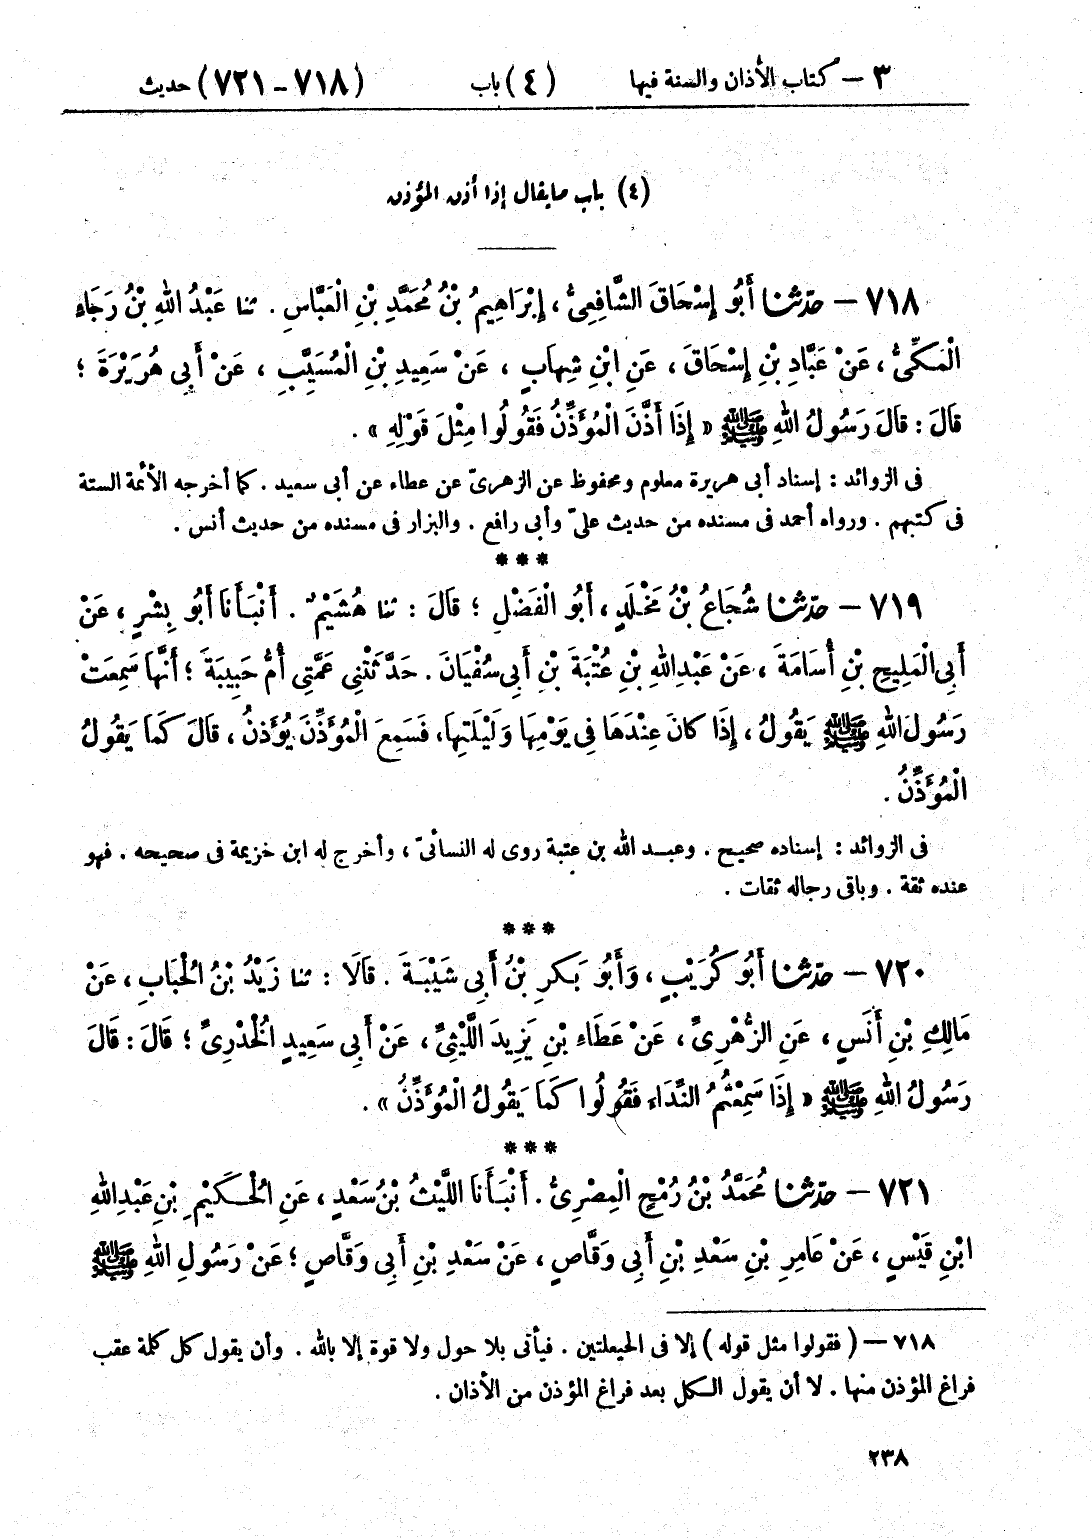 ٣ — كتاب الأذان والسنة فيها (٤) باب (٧١٨ - ٧٢١) حديث
(٤) باب ما يقال إذا أذن المؤذن
٧١٨ — حَدَّثَنَا أَبُو إِسْحَاقَ الشَّافِعِيُّ، إِبْرَاهِيمُ بْنُ مُحَمَّدِ بْنِ الْعَبَّاسِ . ثنا عَبْدُ اللهِ بْنُ رَجَاءٍ
الْمَكِّىُّ، عَنْ عَبَّادِ بْنِ إِسْحَاقَ، عَنِ ابْنِ شِهَابٍ ، عَنْ سَعِيدِ بْنِ الْمُسَيَّبِ ، عَنْ أَبِى هُرَيْرَةَ ؛
قَالَ : قَالَ رَسُولُ اللهِ ﷺ « إِذَا أَذَّنَ الْمُؤَذِّنُ فَقُولُوا مِثْلَ قَوْلِهِ » .
فى الزوائد : إسناد أبى هريرة معلوم ومحفوظ عن الزهرىّ عن عطاء عن أبى سعيد . كما أخرجه الأئمة الستة
فى كتبهم . ورواه أحمد فى مسنده من حديث علىّ وأبى رافع . والبزار فى مسنده من حديث أنس .
***
٧١٩ — حَدَّثَنَا شُجَاعُ بْنُ مَخْلَدٍ، أَبُو الْفَضْلِ ؛ قَالَ : ثنا هُشَيْمٌ . أَنْبَأَنَا أَبُو بِشْرٍ ، عَنْ
أَبِى الْمَلِيحِ بْنِ أُسَامَةَ ، عَنْ عَبْدِ اللهِ بْنِ عُتْبَةَ بْنِ أَبِى سُفْيَانَ . حَدَّثَتْنِى عَمَّتِى أُمُّ حَبِيبَةَ ؛ أَنَّهَا سَمِعَتْ
رَسُولَ اللهِ ﷺ يَقُولُ ، إِذَا كَانَ عِنْدَهَا فِى يَوْمِهَا وَلَيْلَتِهَا، فَسَمِعَ الْمُؤَذِّنَ يُؤَذِّنُ ، قَالَ كَمَا يَقُولُ
الْمُؤَذِّنُ .
فى الزوائد : إسناده صحيح . وعبد الله بن عتبة روى له النسائىّ ، وأخرج له ابن خزيمة فى صحيحه . فهو
عنده ثقة . وباقى رجاله ثقات .
***
٧٢٠ — حَدَّثَنَا أَبُو كُرَيْبٍ ، وَأَبُو بَكْرِ بْنُ أَبِى شَيْبَةَ . قَالَا : ثنا زَيْدُ بْنُ الْحُبَابِ ، عَنْ
مَالِكِ بْنِ أَنَسٍ ، عَنِ الزُّهْرِىِّ ، عَنْ عَطَاءِ بْنِ يَزِيدَ اللَّيْثِىِّ ، عَنْ أَبِى سَعِيدٍ الْخُدْرِىِّ ؛ قَالَ : قَالَ
رَسُولُ اللهِ ﷺ « إِذَا سَمِعْتُمُ النِّدَاءَ فَقُولُوا كَمَا يَقُولُ الْمُؤَذِّنُ » .
***
٧٢١ — حَدَّثَنَا مُحَمَّدُ بْنُ رُمْحٍ الْمِصْرِىُّ . أَنْبَأَنَا اللَّيْثُ بْنُ سَعْدٍ ، عَنِ الْحُكَيْمِ بْنِ عَبْدِ اللهِ
ابْنِ قَيْسٍ ، عَنْ عَامِرِ بْنِ سَعْدِ بْنِ أَبِى وَقَّاصٍ ، عَنْ سَعْدِ بْنِ أَبِى وَقَّاصٍ ؛ عَنْ رَسُولِ اللهِ ﷺ
٧١٨ — ( فقولوا مثل قوله ) إلا فى الحيعلتين . فيأتى بلا حول ولا قوة إلا بالله . وأن يقول كل كلمة عقب
فراغ المؤذن منها . لا أن يقول الكل بعد فراغ المؤذن من الأذان .
٢٣٨